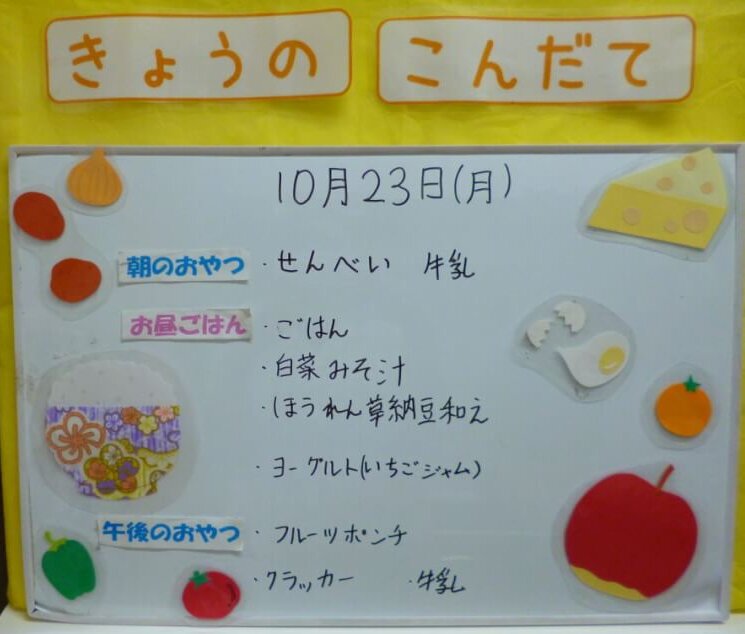 きょうの こんだて
10月23日(月)
朝のおやつ ・せんべい 牛乳
お昼ごはん ・ごはん
・白菜みそ汁
・ほうれん草納豆和え
・ヨーグルト(いちごジャム)
午後のおやつ ・フルーツポンチ
・クラッカー ・牛乳